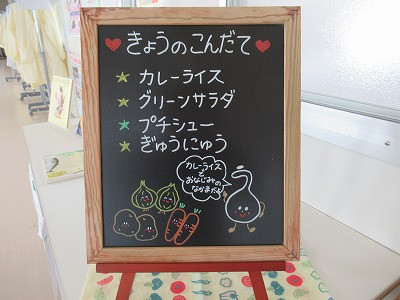 きょうのこんだて
カレーライス
グリーンサラダ
プチシュー
ぎゅうにゅう
カレーライス
で
おなじみの
なかまだよ